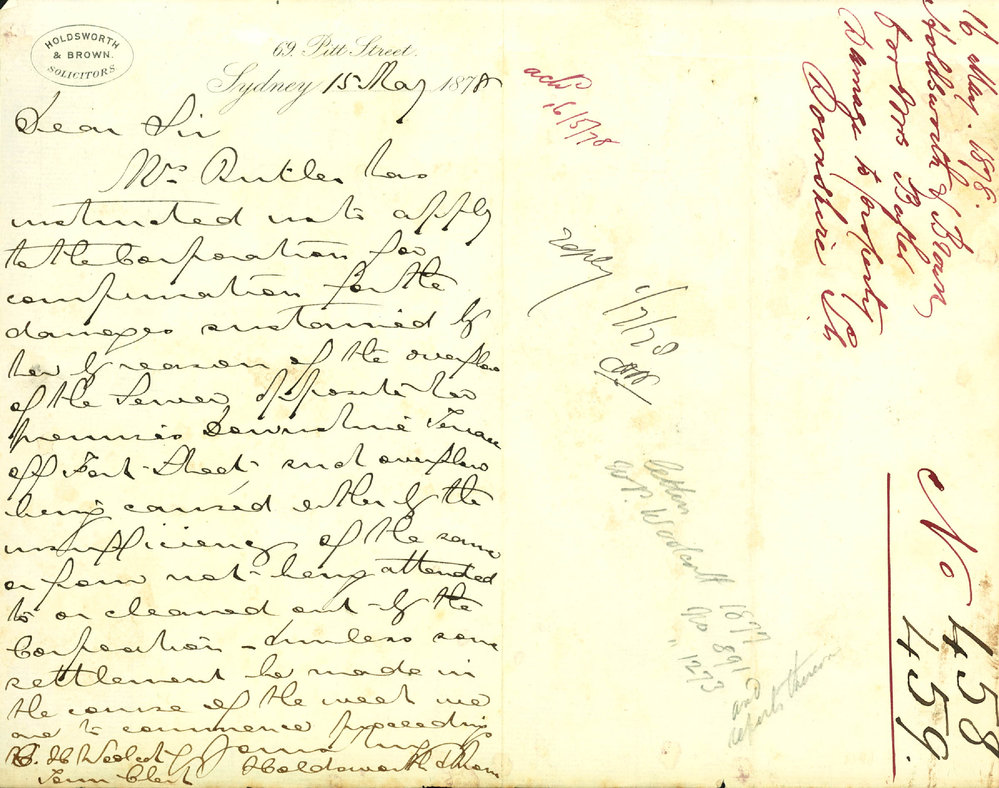 HOLDSWORTH
& BROWN.
SOLICITORS
69. Pitt Street.
Sydney 15 May 1878
Dear Sir
Mrs Butler has
instructed us to apply
to the Corporation for
compensation for the
damages sustained by
her by reason of the overflow
of the Sewer opposite her
premises Downshire Terrace
off Fort Street such overflow
being caused either by the
insufficiency of the same
or from not being attended
to or cleaned out by the
Corporation – unless some
settlement be made in
the course of the week we
are to commence proceedings
Yours truly
Holdsworth & Brown
C. H. Woolcott Esq
Town Clerk
ackd
16/5/78
reply
1/7/78
letters
Woolcott 1877
No 891
" 1273
and
reports thereon
16 May. 1878.
Holdsworth & Brown
for Mrs Butler
Damage to property
Downshire St
No 458
459.